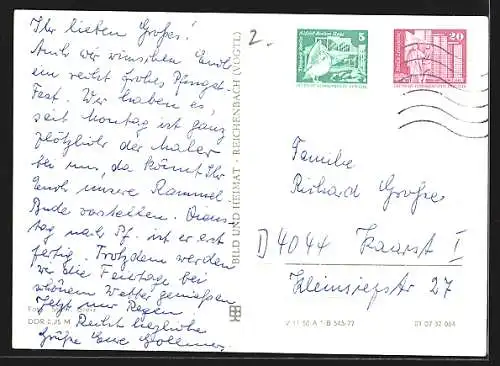 Ihr lieben Großes!
Auch wir wünschen Euch
ein recht frohes Pfingst-
Fest. Wir haben es,
seit Montag ist ganz
plötzlich der Maler
bei uns, da könnt Ihr
Euch unsere Rammel-
Bude vorstellen. Diens-
tag nach Pf. ist er erst
fertig. Trotzdem werden
wir die Feiertage bei
schönem Wetter genießen
Jetzt nur Regen.
Recht herzliche
Grüße Eure
Foto:
DDR 0,25 M
2.
BILD UND HEIMAT · REICHENBACH (VOGTL)
5
20
Familie
Richard Großes
D 4044 Kaarst I
Kleinsiepstr 27
V 11 50 A 1/B 545/77
01 07 32 064